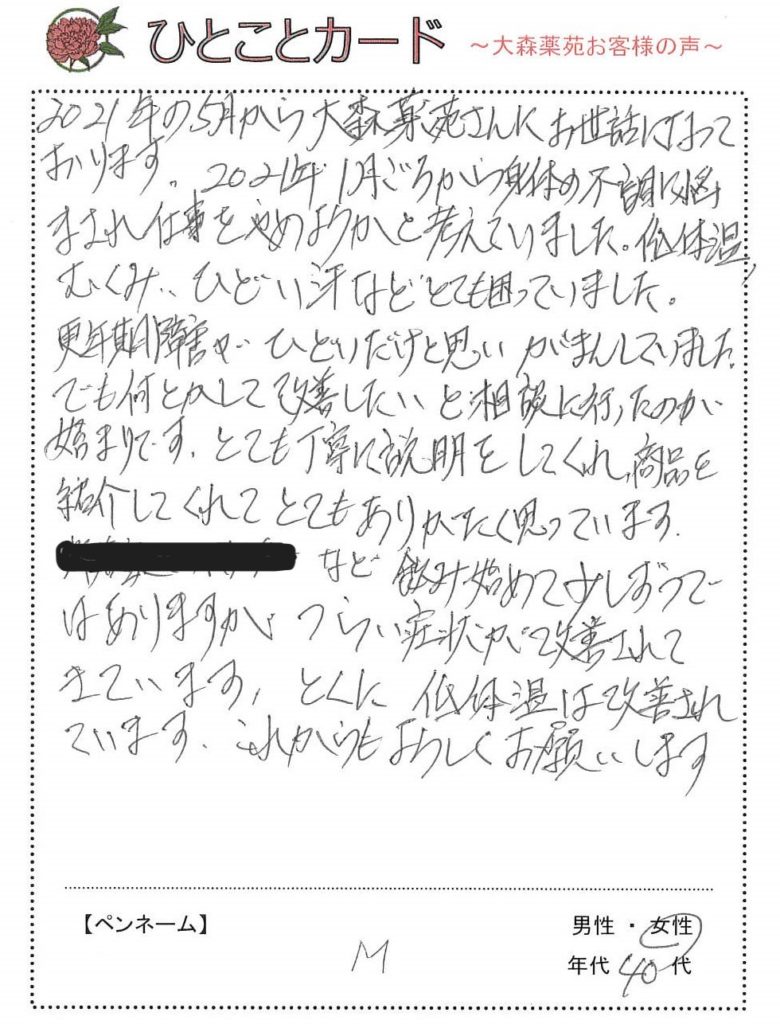 ひとことカード ～大森薬苑お客様の声～
2021年の5月から大森薬苑さんにお世話になって
おります。2021年1月ごろから身体の不調に悩
まされ仕事をやめようかと考えていました。低体温、
むくみ、ひどい汗などとても困っていました。
更年期障害がひどいだけと思いがまんしていました。
でも何とかして改善したいと相談に行ったのが
始まりです。とても丁寧に説明をしてくれ、商品を
紹介してくれてとてもありがたく思っています。
など飲み始めて少しずつで
はありますが つらい症状が改善されて
きています。とくに低体温は改善され
ています。これからもよろしくお願いします
【ペンネーム】 男性・女性
M 年代 40代